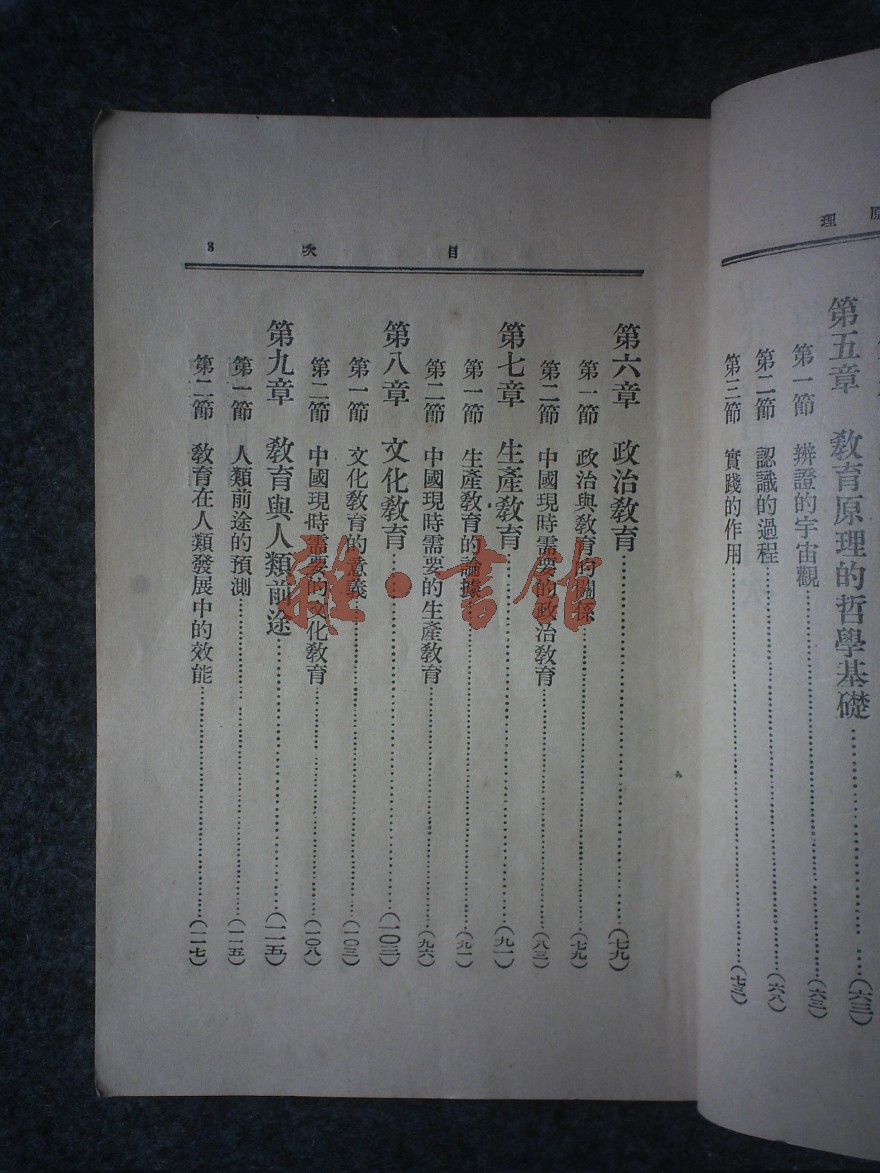 理
第五章　教育原理的哲學基礎……(六三)
第一節　辨證的宇宙觀……(六三)
第二節　認識的過程……(六八)
第三節　實踐的作用……(七三)
目　次　3
第六章　政治教育……(七九)
第一節　政治與教育的關係……(七九)
第二節　中國現時需要的政治教育……(八三)
第七章　生產教育……(九一)
第一節　生產教育的論據……(九一)
第二節　中國現時需要的生產教育……(九六)
第八章　文化教育……(一〇三)
第一節　文化教育的意義……(一〇三)
第二節　中國現時需要的文化教育……(一〇八)
第九章　教育與人類前途……(一一五)
第一節　人類前途的預測……(一一五)
第二節　教育在人類發展中的效能……(一一七)
雜·書館